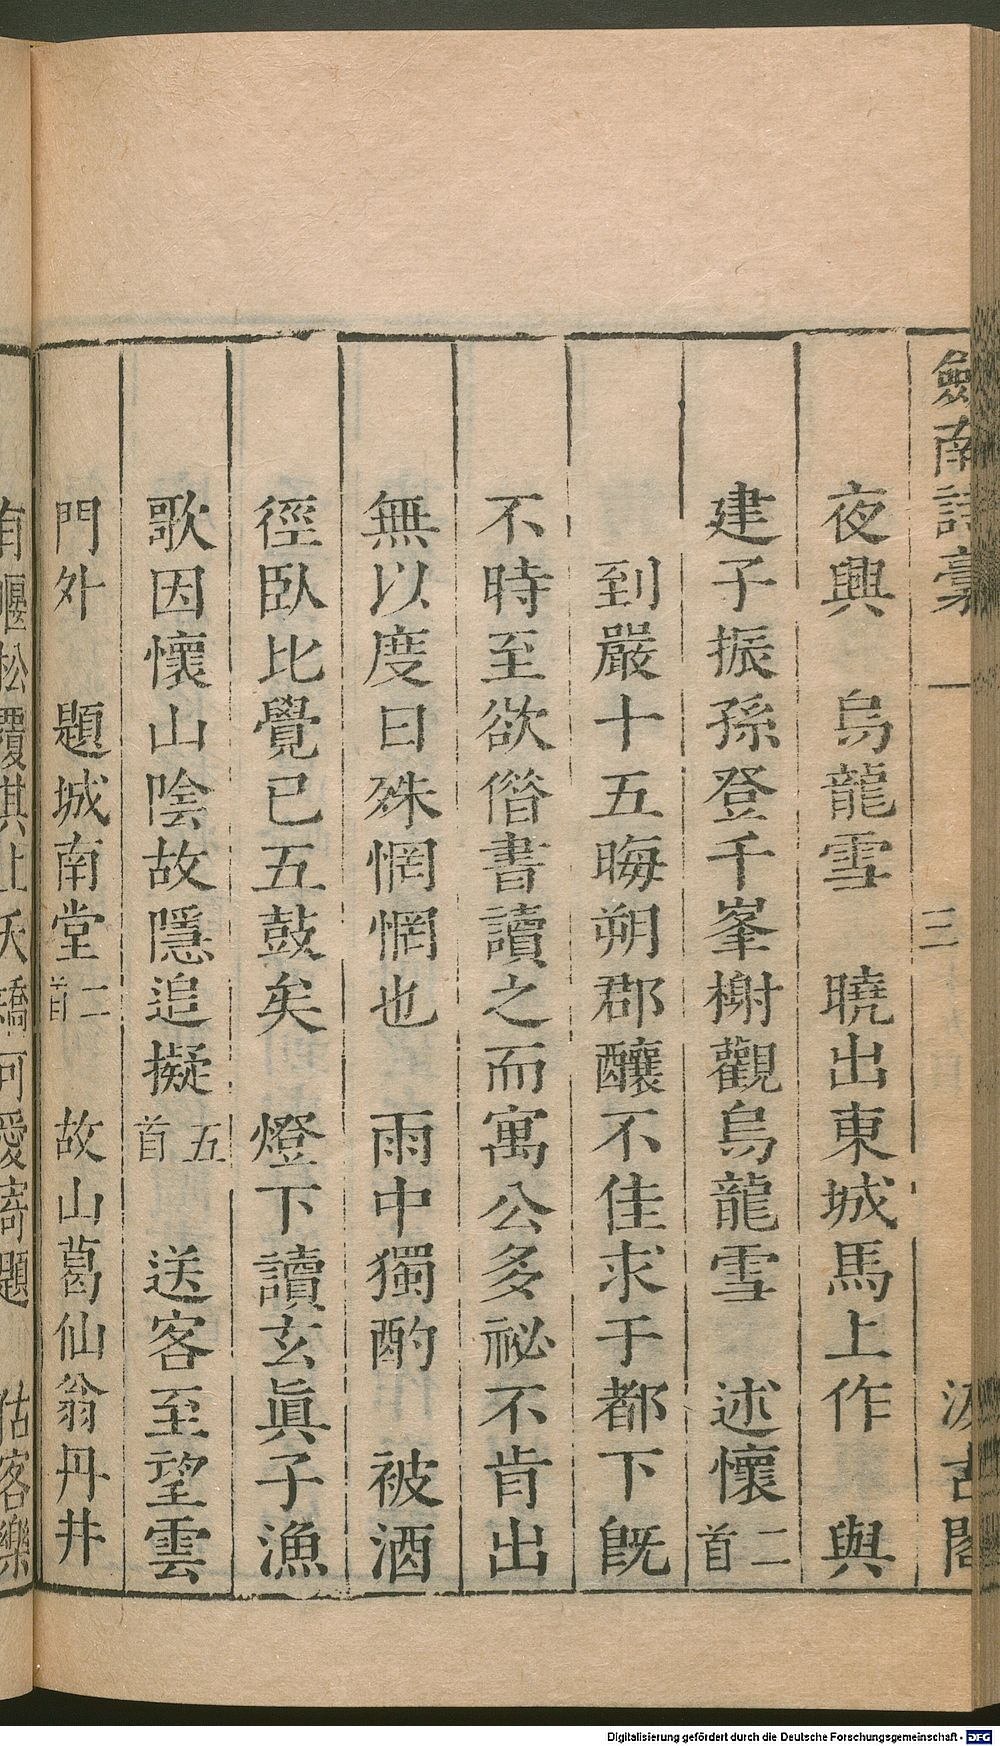 劍南詩稾 三 汲古閣
夜興 烏龍雪 曉出東城馬上作 與
建子振孫登千峯榭觀烏龍雪 述懷二首
到嚴十五晦朔郡釀不佳求于都下旣
不時至欲偺書讀之而寓公多祕不肯出
無以度日殊惘惘也 雨中獨酌 被酒
徑臥比覺已五鼓矣 燈下讀玄眞子漁
歌因懷山陰故隱追擬五首 送客至望雲
門外 題城南堂二首 故山葛仙翁丹井
有偃松覆其上夭矯可愛寄題 估客樂
Digitalisierung gefördert durch die Deutsche Forschungsgemeinschaft - DFG